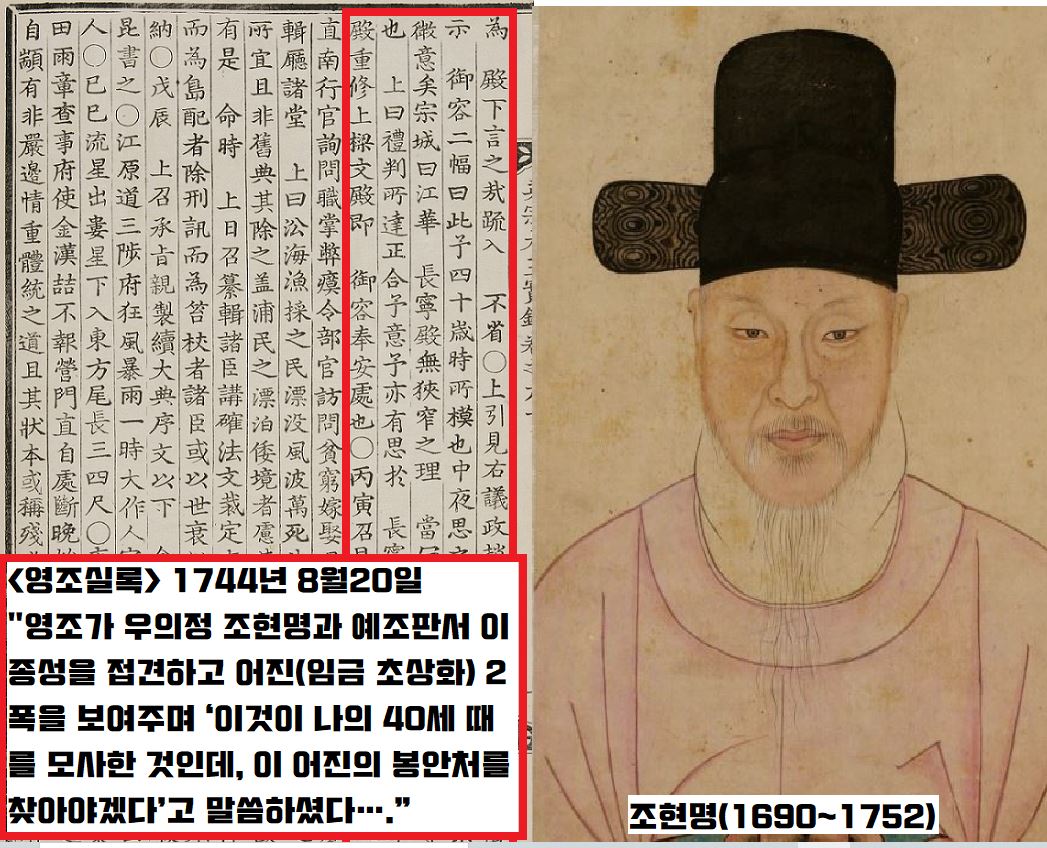 為 殿下言之㦲疏入 不省○上引見右議政趙
示 御容二幅曰此予四十歲時所模也中夜思之
微意矣宗城曰江華 長寧殿無狹窄之理 當
也 上曰禮判所達正合予意予亦有思於 長寧
殿重修上樑文殿即 御容奉安處也○丙寅召
直南行官詢問職掌弊瘼令部官訪問貧窮嫁娶
輯廳諸堂 上曰公海漁採之民漂没風波萬死
所宜且非舊典其除之盖浦民之漂泊倭境者慮
有是 命時 上日召纂輯諸臣講確法文裁定
而為島配者除刑訊而為笞杖者諸臣或以世衰
納○戊辰 上召承旨親製續大典序文以下
昆書之○江原道三陟府狂風暴雨一時大作人
人○巳巳流星出婁星下入東方尾長三四尺○
田雨章查事府使金漢喆不報營門直自處斷晚
自顓有非嚴邊情重體統之道且其狀本或稱殘
<영조실록> 1744년 8월20일
"영조가 우의정 조현명과 예조판서 이
종성을 접견하고 어진(임금 초상화) 2
폭을 보여주며 ‘이것이 나의 40세 때
를 모사한 것인데, 이 어진의 봉안처를
찾아야겠다’고 말씀하셨다….”
조현명(1690~1752)